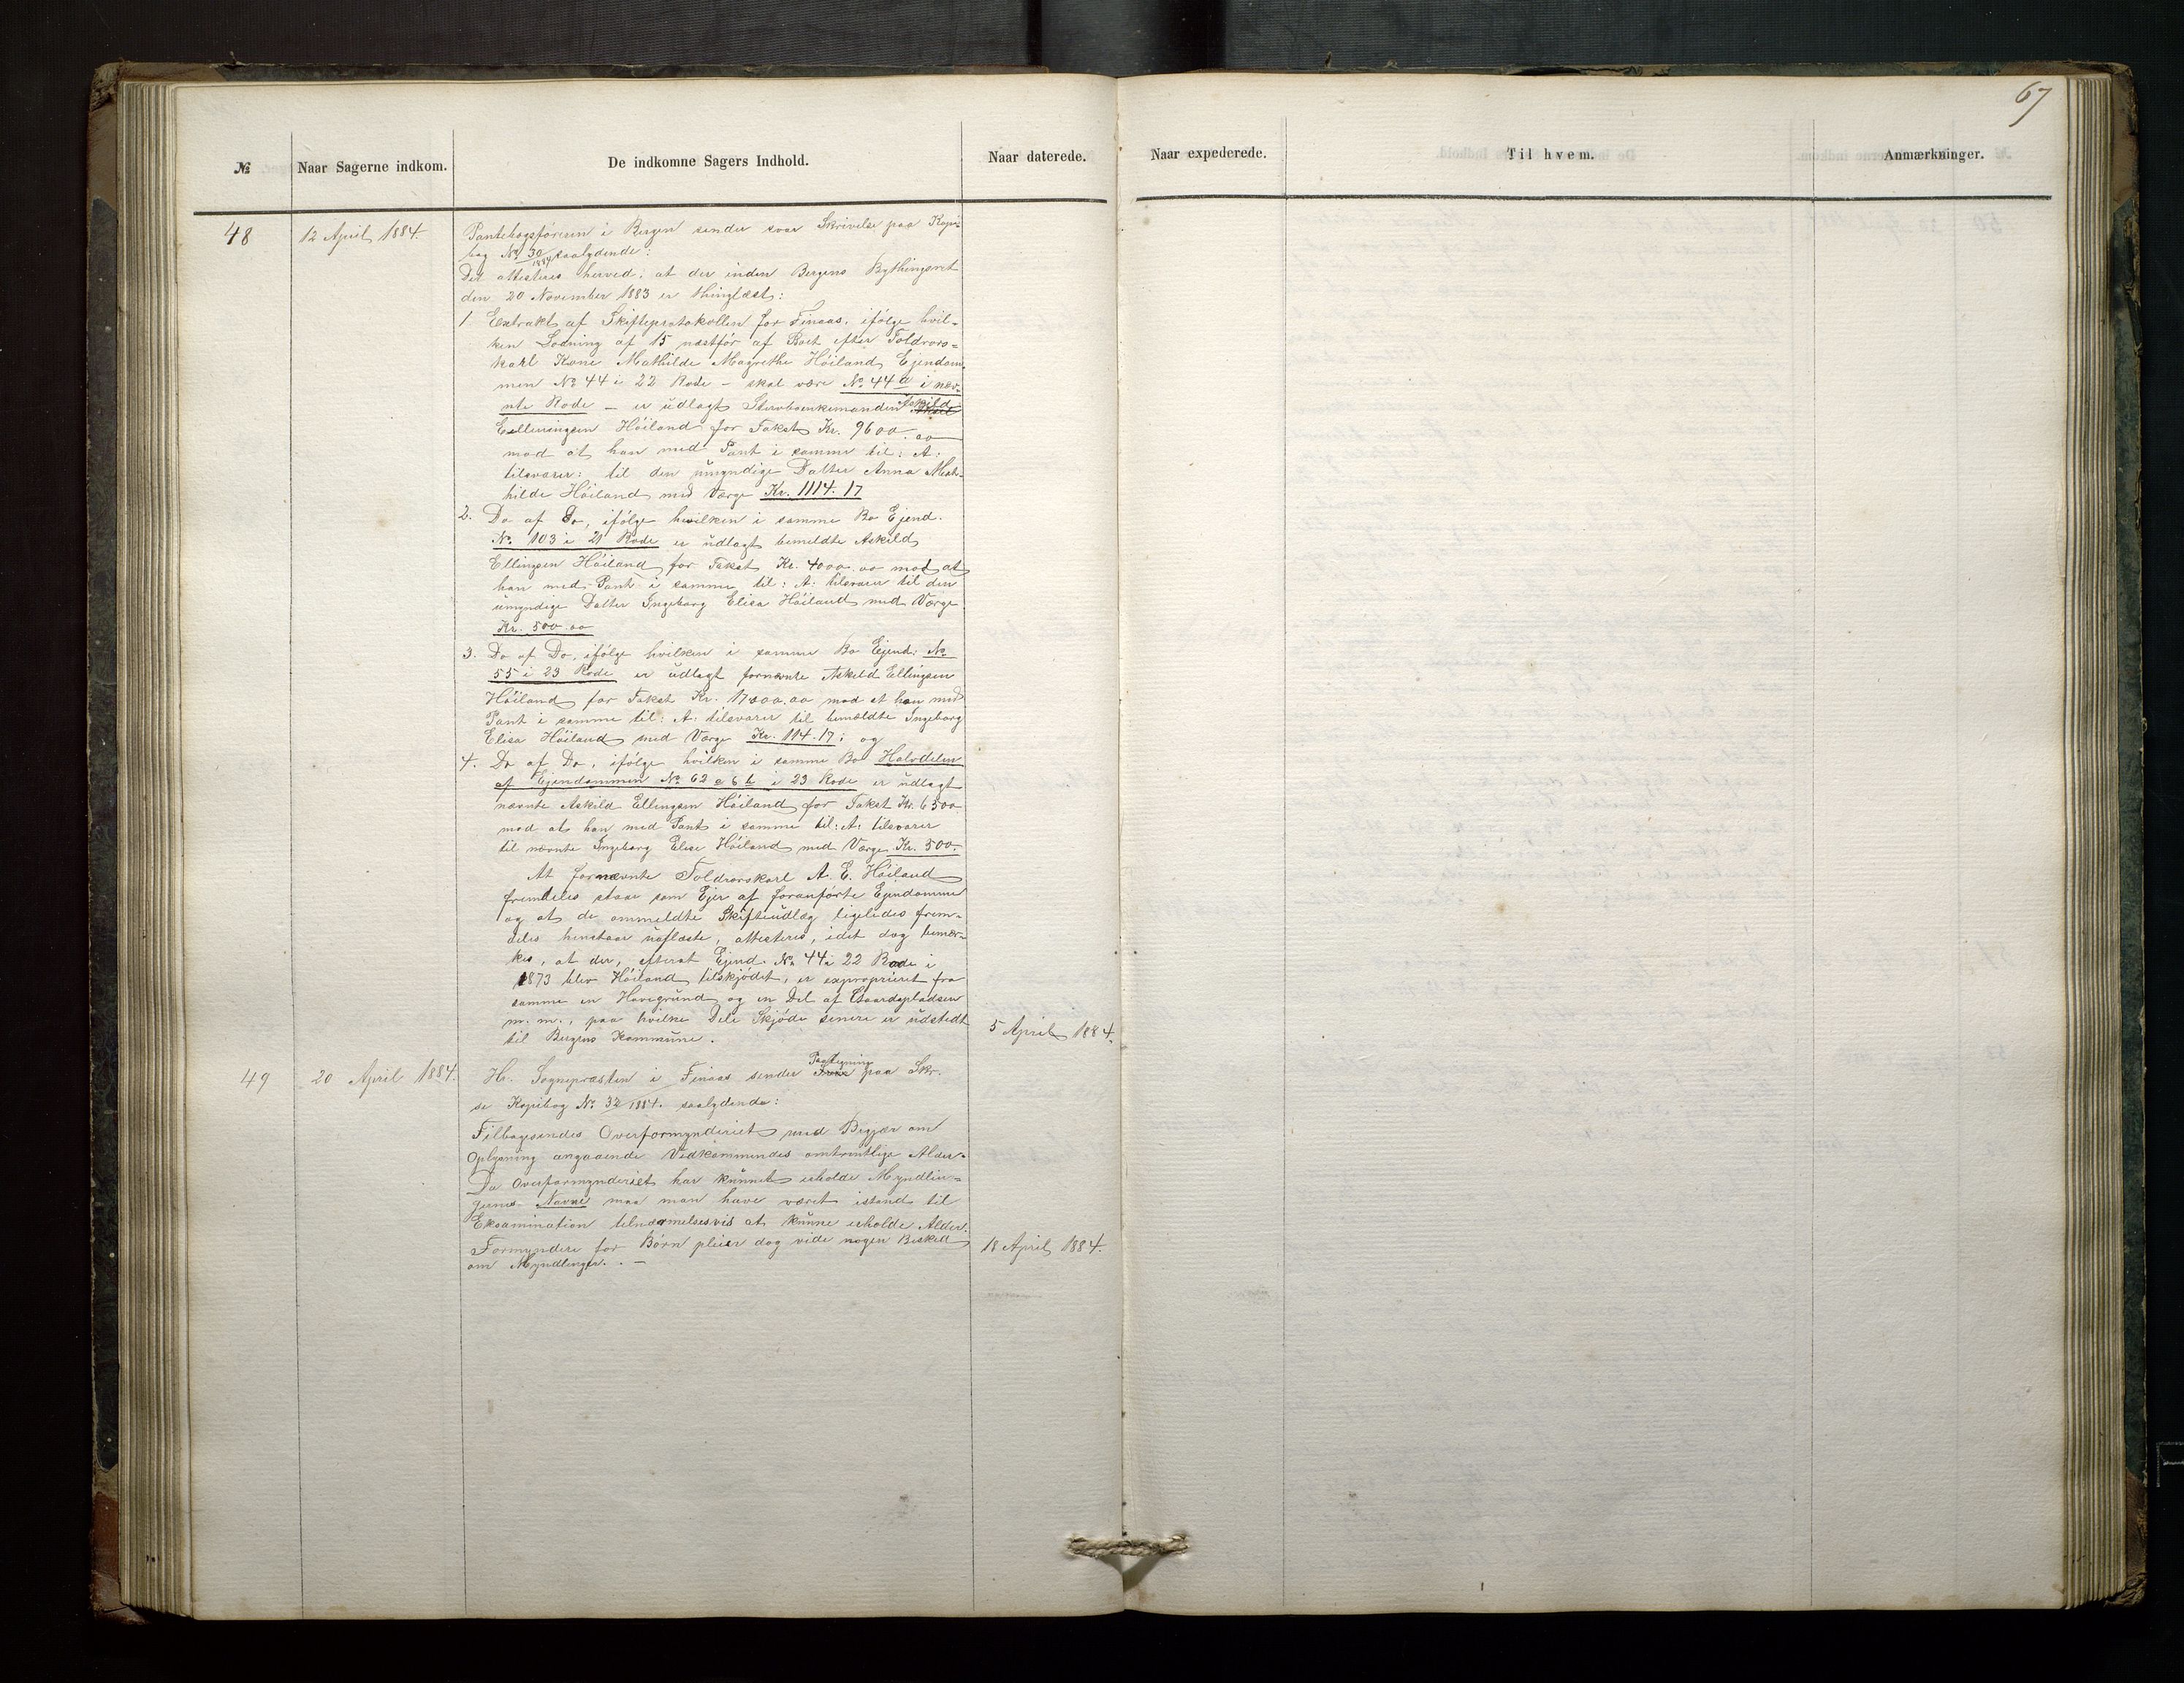 67
№ Naar Sagerne indkom. De indkomne Sagers Indhold. Naar daterede. Naar expederede. Til hvem. Anmærkninger.
48 12 April 1884. Pantebogsføreren i Bergen sender svar Skrivelse paa Kopi-
bog № 30/1884 saalydende:
Det attesteres herved, at der inden Bergens Bythingsret
den 20 November 1883 er thinglæst:
1 Extrakt af Skifteprotokollen for Finaas, ifølge hvil-
ken Lodning af 15 næstfør af Boet efter Toldrors-
karl Kone Mathilde Magrethe Høiland Ejendom-
men № 44 i 22 Rode – skal være № 44 a i næv-
nte Rode – er udlagt Stervboenkemanden Askild
Ellingsen Høiland for Takst Kr. 9600.00
mod at han med Pant i samme til: A:
tilsvarer: til den umyndige Datter Anna Mat-
hilde Høiland med Værge Kr. 1114.17
2. Do af Do, ifølge hvilken i samme Bo Ejend.
№ 103 i 21 Rode er udlagt bemeldte Askild
Ellingsen Høiland for Takst Kr. 4000.00 mod at
han med Pant i samme til: A: tilsvarer til den
umyndige Datter Ingeborg Elisa Høiland med Værge
Kr. 500.00
3. Do af Do, ifølge hvilken i samme Bo Ejend: №
55 i 23 Rode er udlagt fornævnte Askild Ellingsen
Høiland for Takst Kr. 17000.00 mod at han med
Pant i samme til: A: tilsvarer til bemældte Ingeborg
Elisa Høiland med Værge Kr. 114.17; og
4. Do af Do, ifølge hvilken i samme Bo Halvdelen
af Ejendommen № 62 a 6 b i 23 Rode er udlagt
nævnte Askild Ellingsen Høiland for Takst Kr. 6500
mod at han med Pant i samme til: A: tilsvarer
til nævnte Ingeborg Elise Høiland med Værge Kr. 500.
At fornævnte Toldrorskarl A. E. Høiland
fremdeles staar som Ejer af foranførte Ejendomme
og at de ommeldte Skifteudlæg ligeledes frem-
deles henstaar uaflæste, attesteres, idet dog bemær-
kes, at der, efterat Ejend. № 44 i 22 Rode i
1873 blev Høiland tilskjødet, er exproprieret fra
samme en Havegrund og en Del af Gaardspladsen
m. m., paa hvilke Dele Skjøde senere er udstedt 5 April 1884.
til Bergens Kommune.
49 20 April 1884. Hr. Sognepræsten i Finaas sender Paategning paa Skr.
se Kopibog № 32/1884. saalydende:
Tilbagesendes Overformynderiet med Begjær om
Oplysning angaaende Vedkommendes omtrentlige Alder.
Da Overformynderiet har kunnet erholde Myndlin-
gernes Navne maa man have været istand til
Eksamination tilnærmelsesvis at kunne erholde Alder.
Formyndere for Børn pleier dog vide nogen Besked 18 April 1884.
om Myndlinger. –